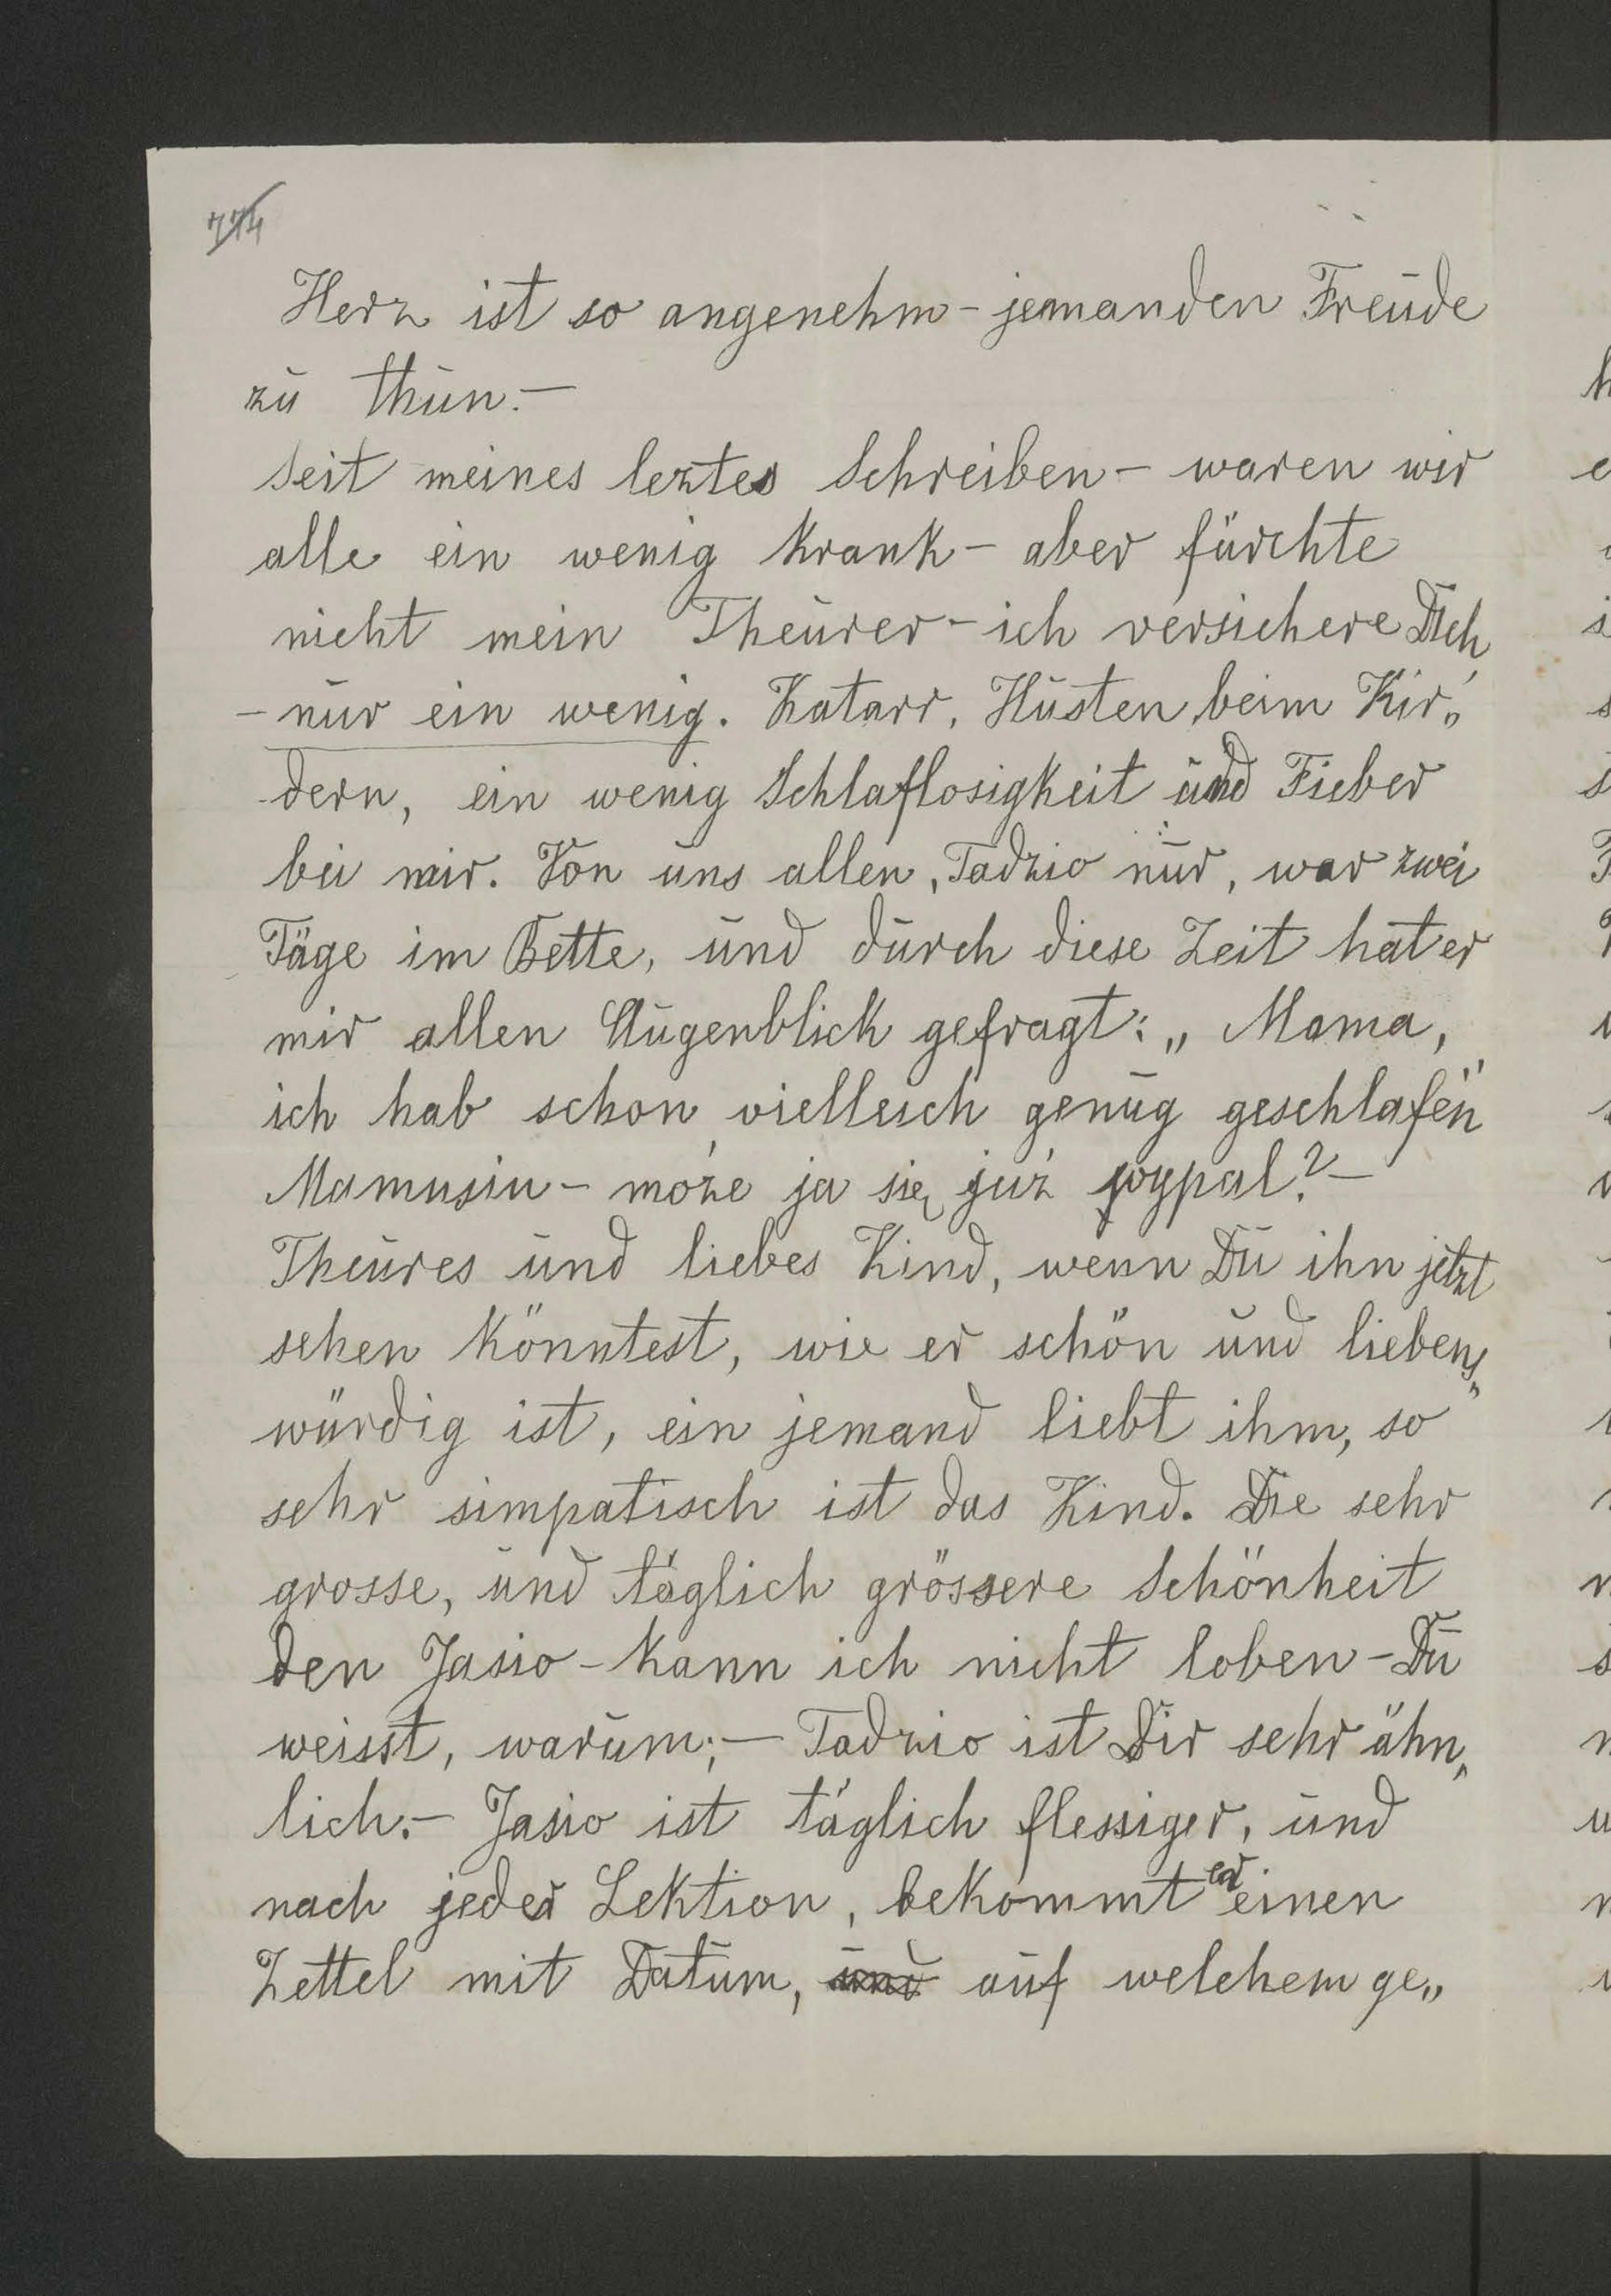 774
Herz ist so angenehm - jemanden Freude
zu thun. —
Seit meines leztes Schreiben - waren wir
alle ein wenig krank - aber fürchte
nicht mein Theurer - ich versichere Dich
- nur ein wenig. Katarr, Husten beim Kin„
dern, ein wenig Schlaflosigkeit und Fieber
bei mir. Von uns allen, Tadzio nur, war zwei
Täge im Bette, und durch diese Zeit hat er
mir allen Augenblick gefragt: „Mama,
ich hab schon vielleich genug geschlafen"
Mamusiu - może ja się już wypał? —
Theures und liebes Kind, wenn Du ihn jetzt
sehen könntest, wie er schön und liebens„
würdig ist, ein jemand liebt ihm, so
sehr simpatisch ist das Kind. Die sehr
grosse, und täglich grössere Schönheit
den Jasio - kann ich nicht loben - Du
weisst, warum; — Tadzio ist Dir sehr ähn„
lich. - Jasio ist täglich flessiger, und
nach jeder Lektion, bekommt er einen
Zettel mit Datum, und auf welchem ge„